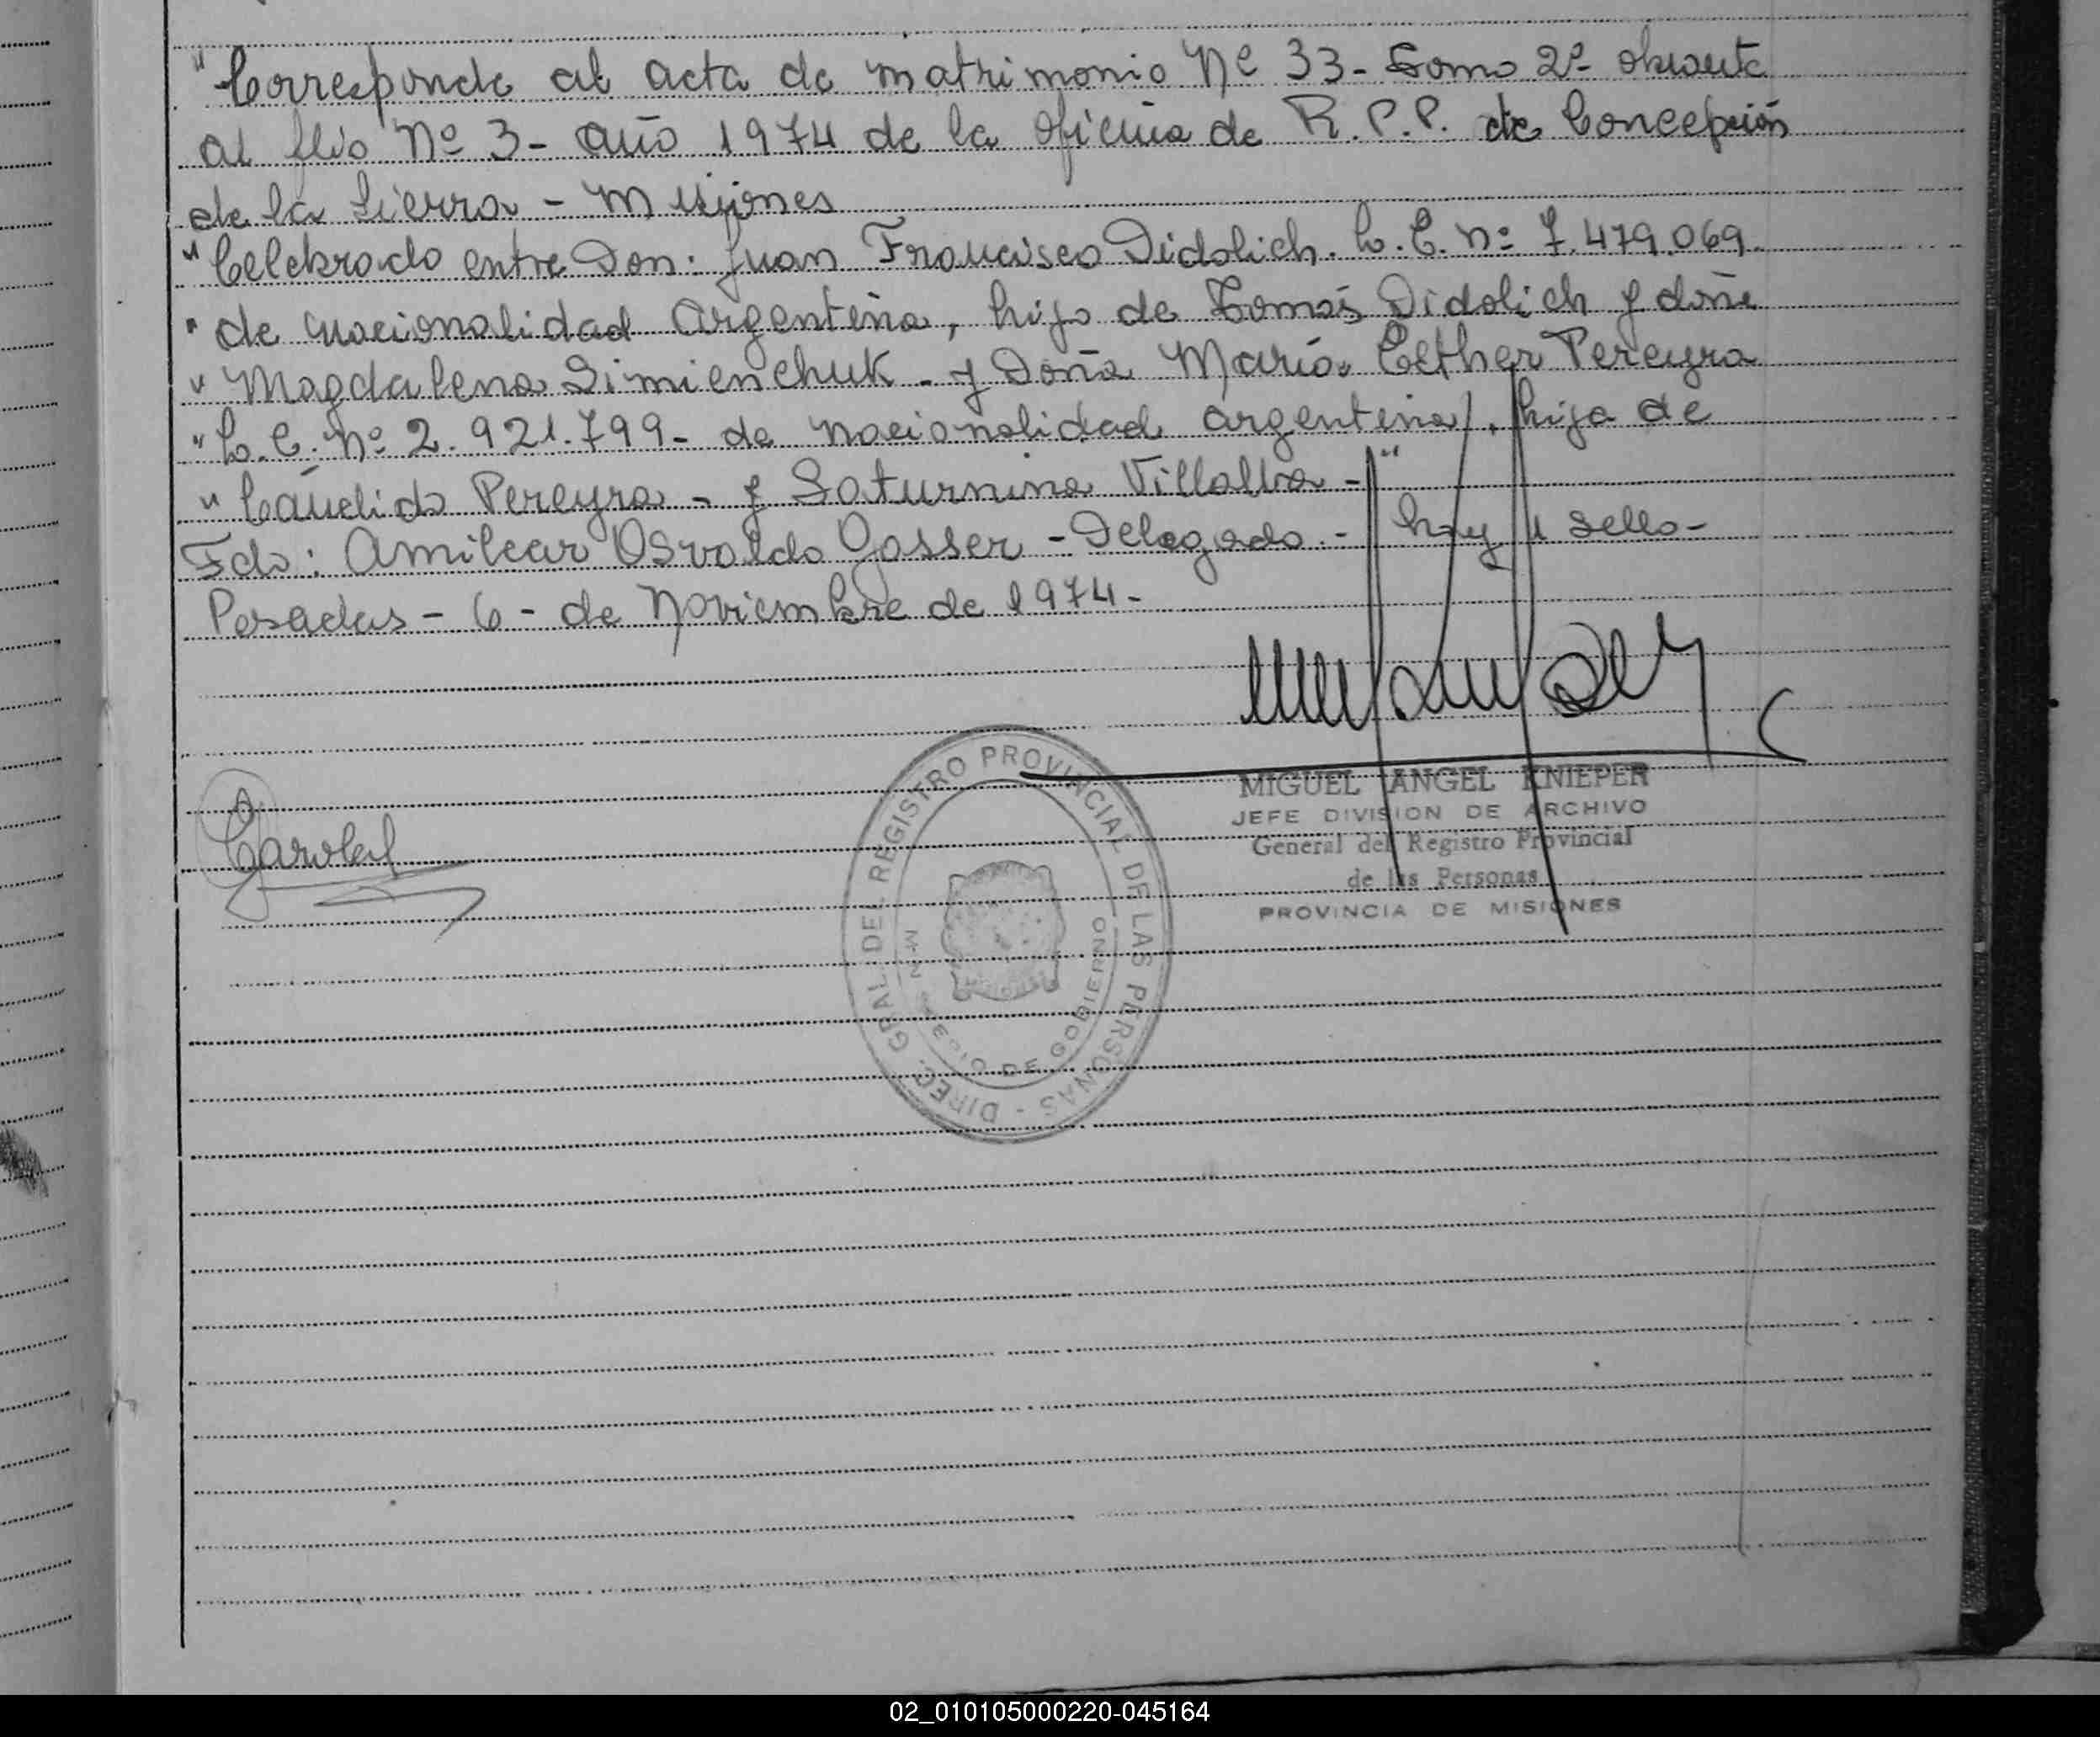 "Corresponde al acta de matrimonio Nº 33- Tomo 2º obrante
al flio Nº 3- año 1974 de la oficina de R.P.P. de Concepción
de la Sierra - Misiones
"Celebrado entre Don: Juan Francisco Didolich. L.E. nº 7.479.069.
" de nacionalidad Argentina, hijo de Tomás Didolich y doña
" Magdalena Simienchuk - y Doña María Esther Pereyra
" L.C. Nº 2.921.799- de nacionalidad argentina, hija de
" Cándido Pereyra - y Saturnina Villalba -"
Fdo: Amilcar Osvaldo Gosser - Delegado.- hay 1 sello-
Posadas - 6 - de Noviembre de 1974-
MIGUEL ANGEL KNIEPER
JEFE DIVISION DE ARCHIVO
General del Registro Provincial
de las Personas
PROVINCIA DE MISIONES
DIREC. GRAL. DEL REGISTRO PROVINCIAL DE LAS PERSONAS -
DE GOBIERNO
MISIONES
02_010105000220-045164